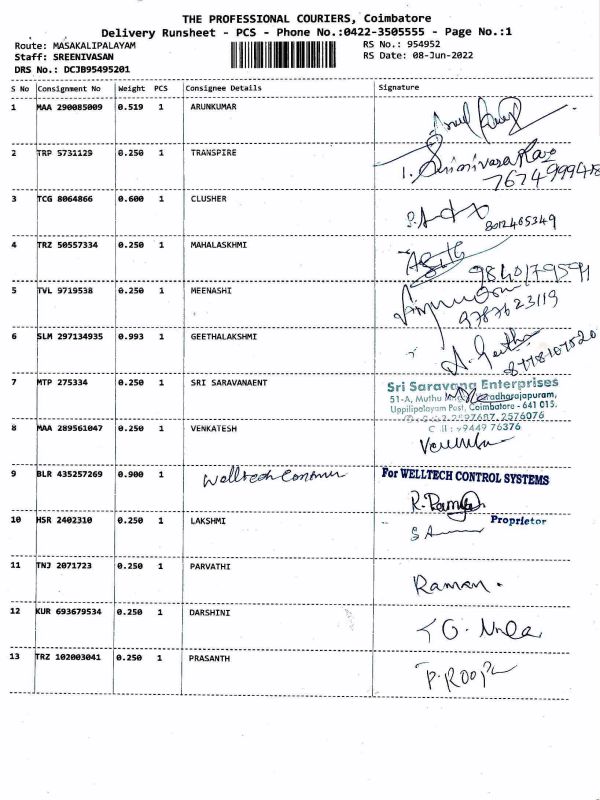 THE PROFESSIONAL COURIERS, Coimbatore
Delivery Runsheet - PCS - Phone No.:0422-3505555 - Page No.:1
Route: MASAKALIPALAYAM
Staff: SREENIVASAN
DRS No.: DCJB95495201
RS No.: 954952
RS Date: 08-Jun-2022
S No Consignment No Weight PCS Consignee Details Signature
1 MAA 290085009 0.519 1 ARUNKUMAR
2 TRP 5731129 0.250 1 TRANSPIRE
3 TCG 8064866 0.600 1 CLUSHER
8012465349
4 TRZ 50557334 0.250 1 MAHALASKHMI
9840179591
5 TVL 9719538 0.250 1 MEENASHI
9787623119
6 SLM 297134935 0.993 1 GEETHALAKSHMI
A. Geetha
8778107520
7 MTP 275334 0.250 1 SRI SARAVANAENT
Sri Saravana Enterprises
51-A, Muthu
Uppilipalayam Post, Coimbatore - 641 015.
2576076
8 MAA 289561047 0.250 1 VENKATESH
94449 76376
9 BLR 435257269 0.900 1 Welltech
For WELLTECH CONTROL SYSTEMS
R.
Proprietor
10 HSR 2402310 0.250 1 LAKSHMI
11 TNJ 2071723 0.250 1 PARVATHI
Raman.
12 KUR 693679534 0.250 1 DARSHINI
13 TRZ 102003041 0.250 1 PRASANTH